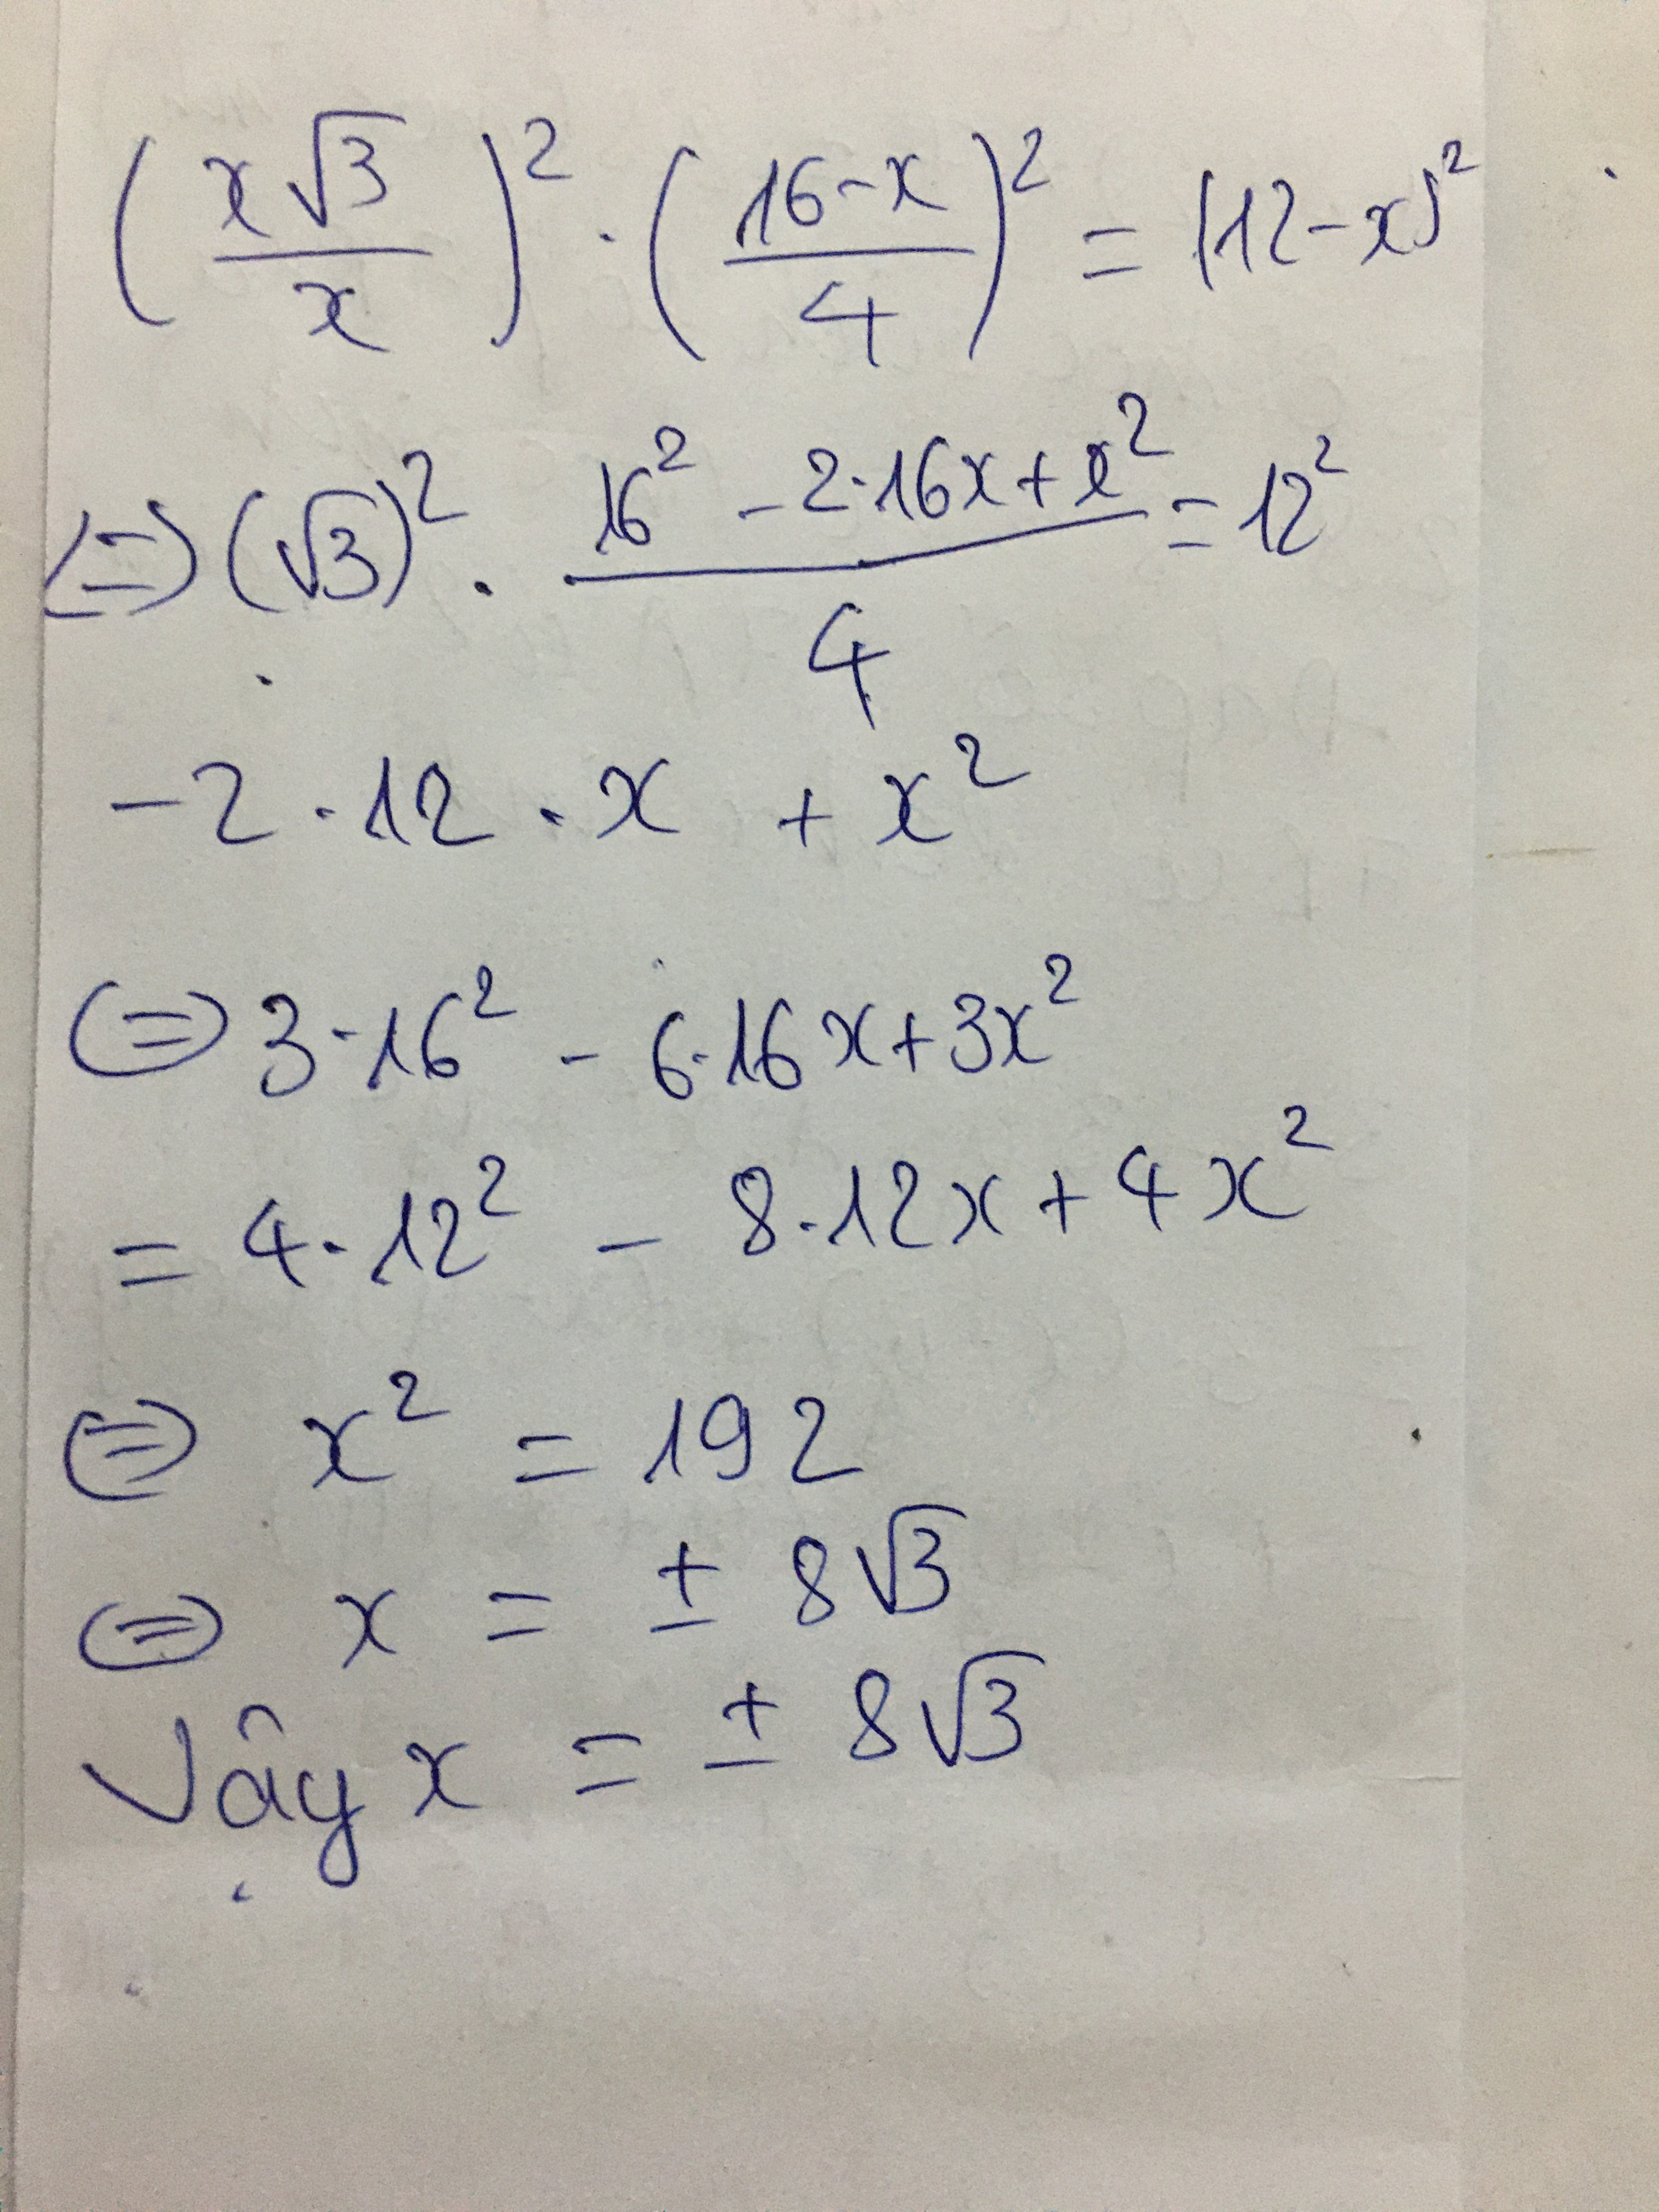 (x√3/x)² · (16-x/4)² = (12-x)²
⇔ (√3)² · 16² - 2·16x + x²/4 = 12²
-2 · 12 · x + x²
⇔ 3·16² - 6·16x + 3x²
= 4·12² - 8·12x + 4x²
⇔ x² = 192
⇔ x = ± 8√3
Vậy x = ± 8√3